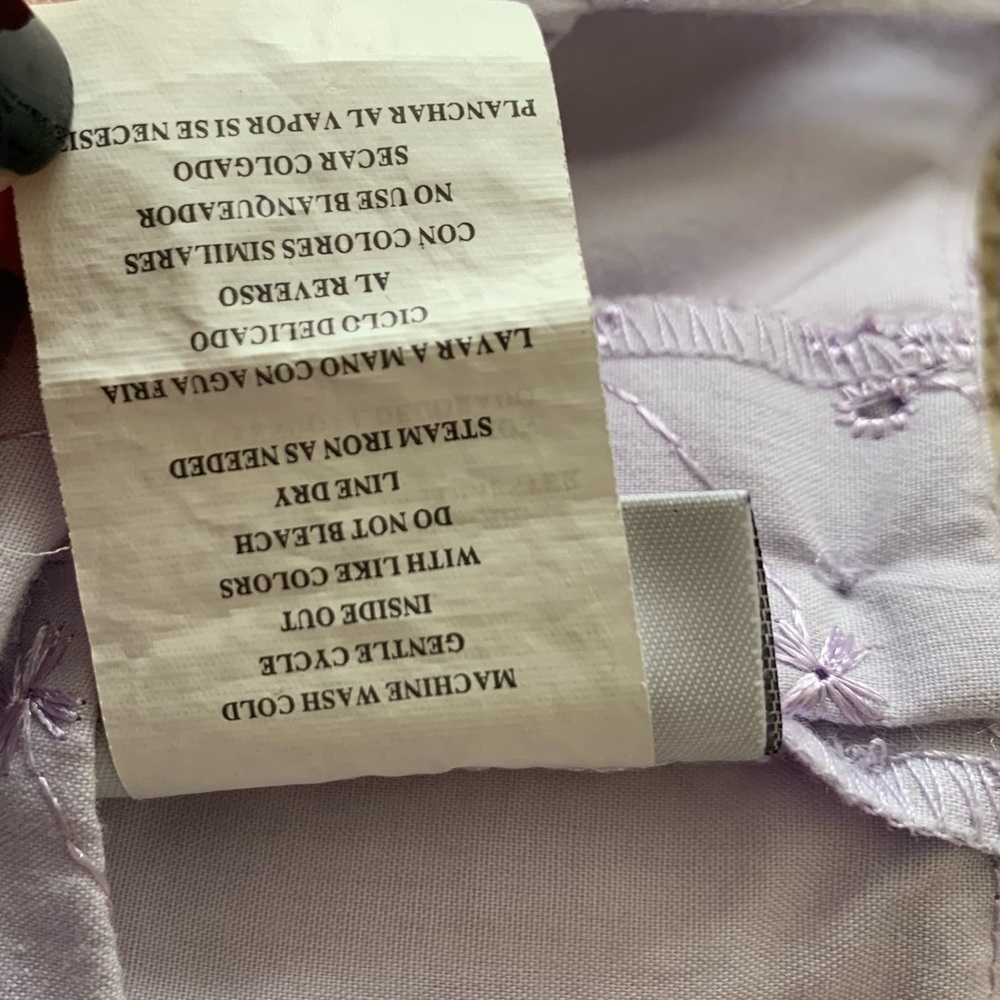 MACHINE WASH COLD
GENTLE CYCLE
INSIDE OUT
WITH LIKE COLORS
DO NOT BLEACH
LINE DRY
STEAM IRON AS NEEDED
LAVAR A MANO CON AGUA FRIA
CICLO DELICADO
AL REVERSO
CON COLORES SIMILARES
NO USE BLANQUEADOR
SECAR COLGADO
PLANCHAR AL VAPOR SI SE NECESI